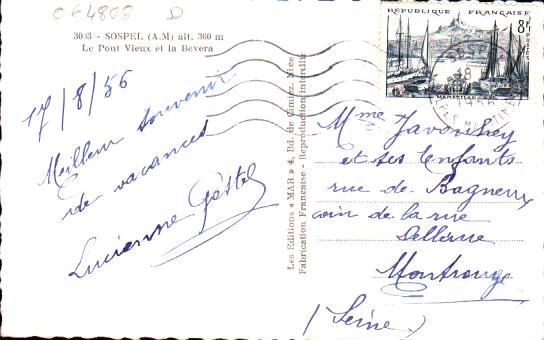 064808 D
3003 - SOSPEL (A.M) alt. 360 m
Le Pont Vieux et la Bevera
17/8/56
Meilleur souvenir
de vacances
Lucienne
Les Editions « MAR » 4, Bd. de Cimiez, Nice
Fabrication Française - Reproduction interdite
RÉPUBLIQUE FRANÇAISE
8F
MARSEILLE
18
Mme
et ses Enfants
rue de Bagneux
coin de la rue
Montrouge
(Seine)